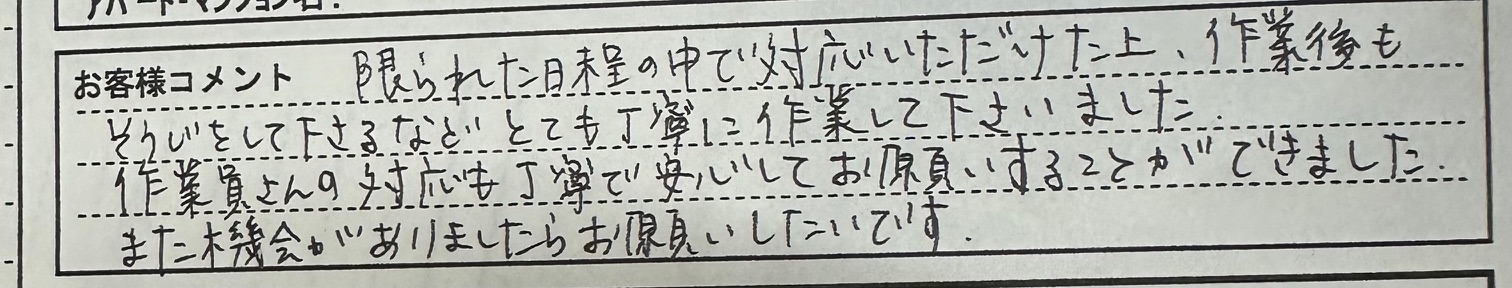 アパート・マンション名:
お客様コメント 限られた日程の中で対応いただけた上、作業後も
そうじをして下さるなどとても丁寧に作業して下さいました.
作業員さんの対応も丁寧で安心してお願いすることができました.
また機会がありましたらお願いしたいです.